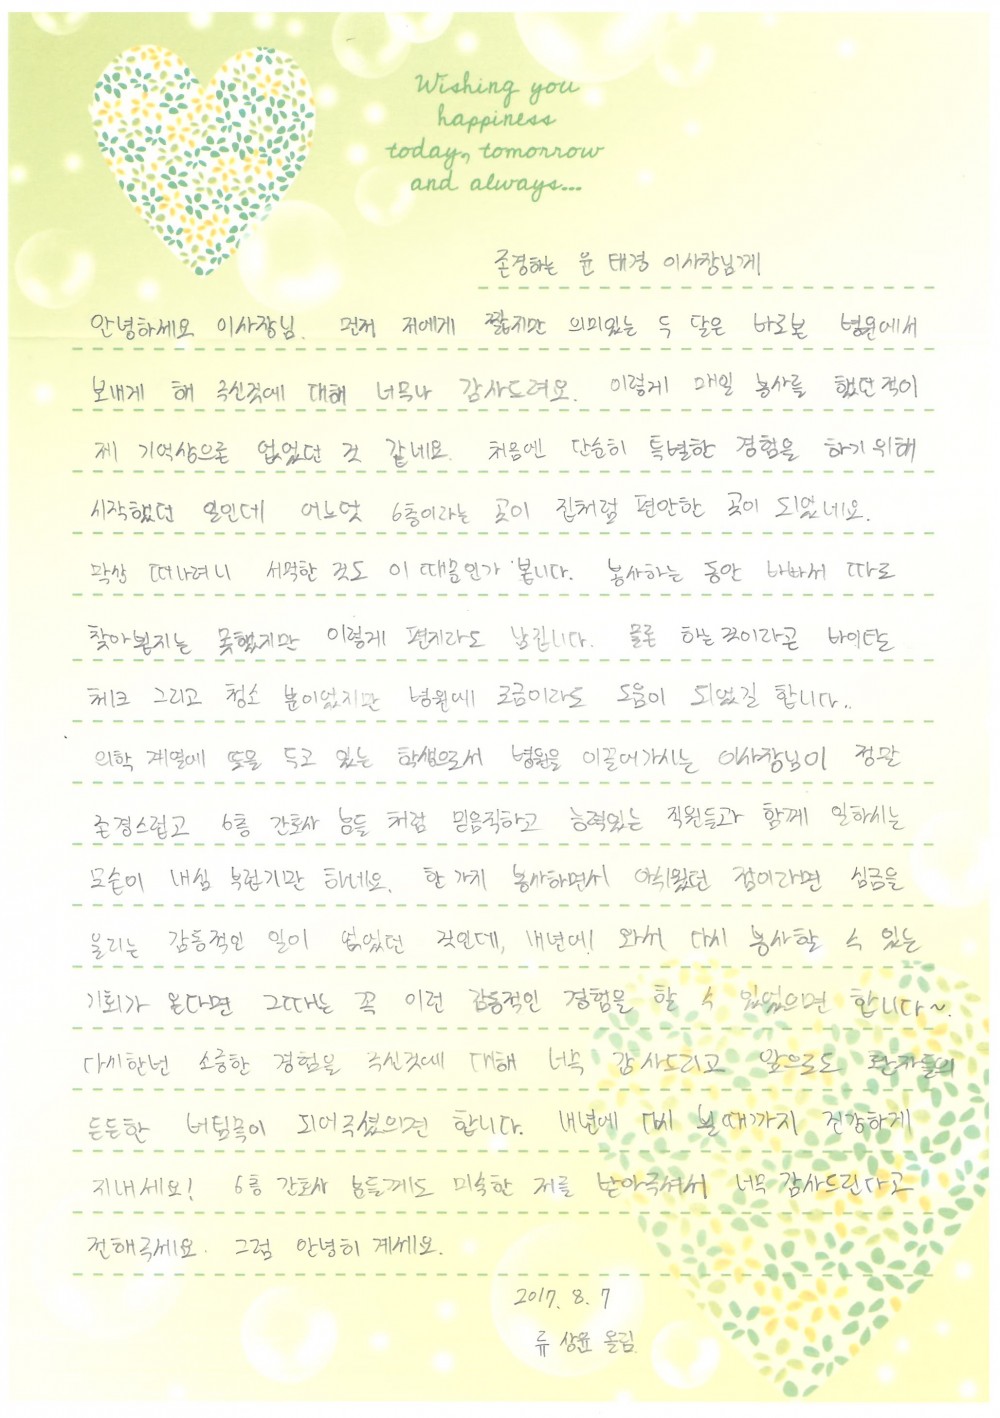 Wishing you
happiness
today, tomorrow
and always...
존경하는 윤 태경 이사장님께
안녕하세요 이사장님. 먼저 저에게 짧지만 의미있는 두 달은 바로본 병원에서
보내게 해 주신것에 대해 너무나 감사드려요. 이렇게 매일 봉사를 했던적이
제 기억상으론 없었던 것 같네요. 처음엔 단순히 특별한 경험을 하기위해
시작했던 일인데 어느덧 6층이라는 곳이 집처럼 편안한 곳이 되었네요.
막상 떠나려니 서먹한 것도 이 때문인가 봅니다. 봉사하는 동안 바빠서 따로
찾아뵙지는 못했지만 이렇게 편지라도 남깁니다. 물론 하는것이라곤 바이탈
체크 그리고 청소 뿐이었지만 병원에 조금이라도 도움이 되었길 합니다..
의학 계열에 뜻을 두고 있는 학생으로서 병원을 이끌어가시는 이사장님이 정말
존경스럽고 6층 간호사 님들 처럼 믿음직하고 능력있는 직원들과 함께 일하시는
모습이 내심 부럽기만 하네요. 한 가지 봉사하면서 아쉬웠던 점이라면 심금을
울리는 감동적인 일이 없었던 것인데, 내년에! 와서 다시 봉사할 수 있는
기회가 온다면 그때는 꼭 이런 감동적인 경험을 할 수 있었으면 합니다~.
다시한번 소중한 경험을 주신것에 대해 너무 감사드리고 앞으로도 환자들의
든든한 버팀목이 되어주셨으면 합니다. 내년에 다시 볼때까지 건강하게
지내세요! 6층 간호사 님들께도 미숙한 저를 받아주셔서 너무 감사드린다고
전해주세요. 그럼 안녕히 계세요.
2017. 8. 7
류 상윤 올림.